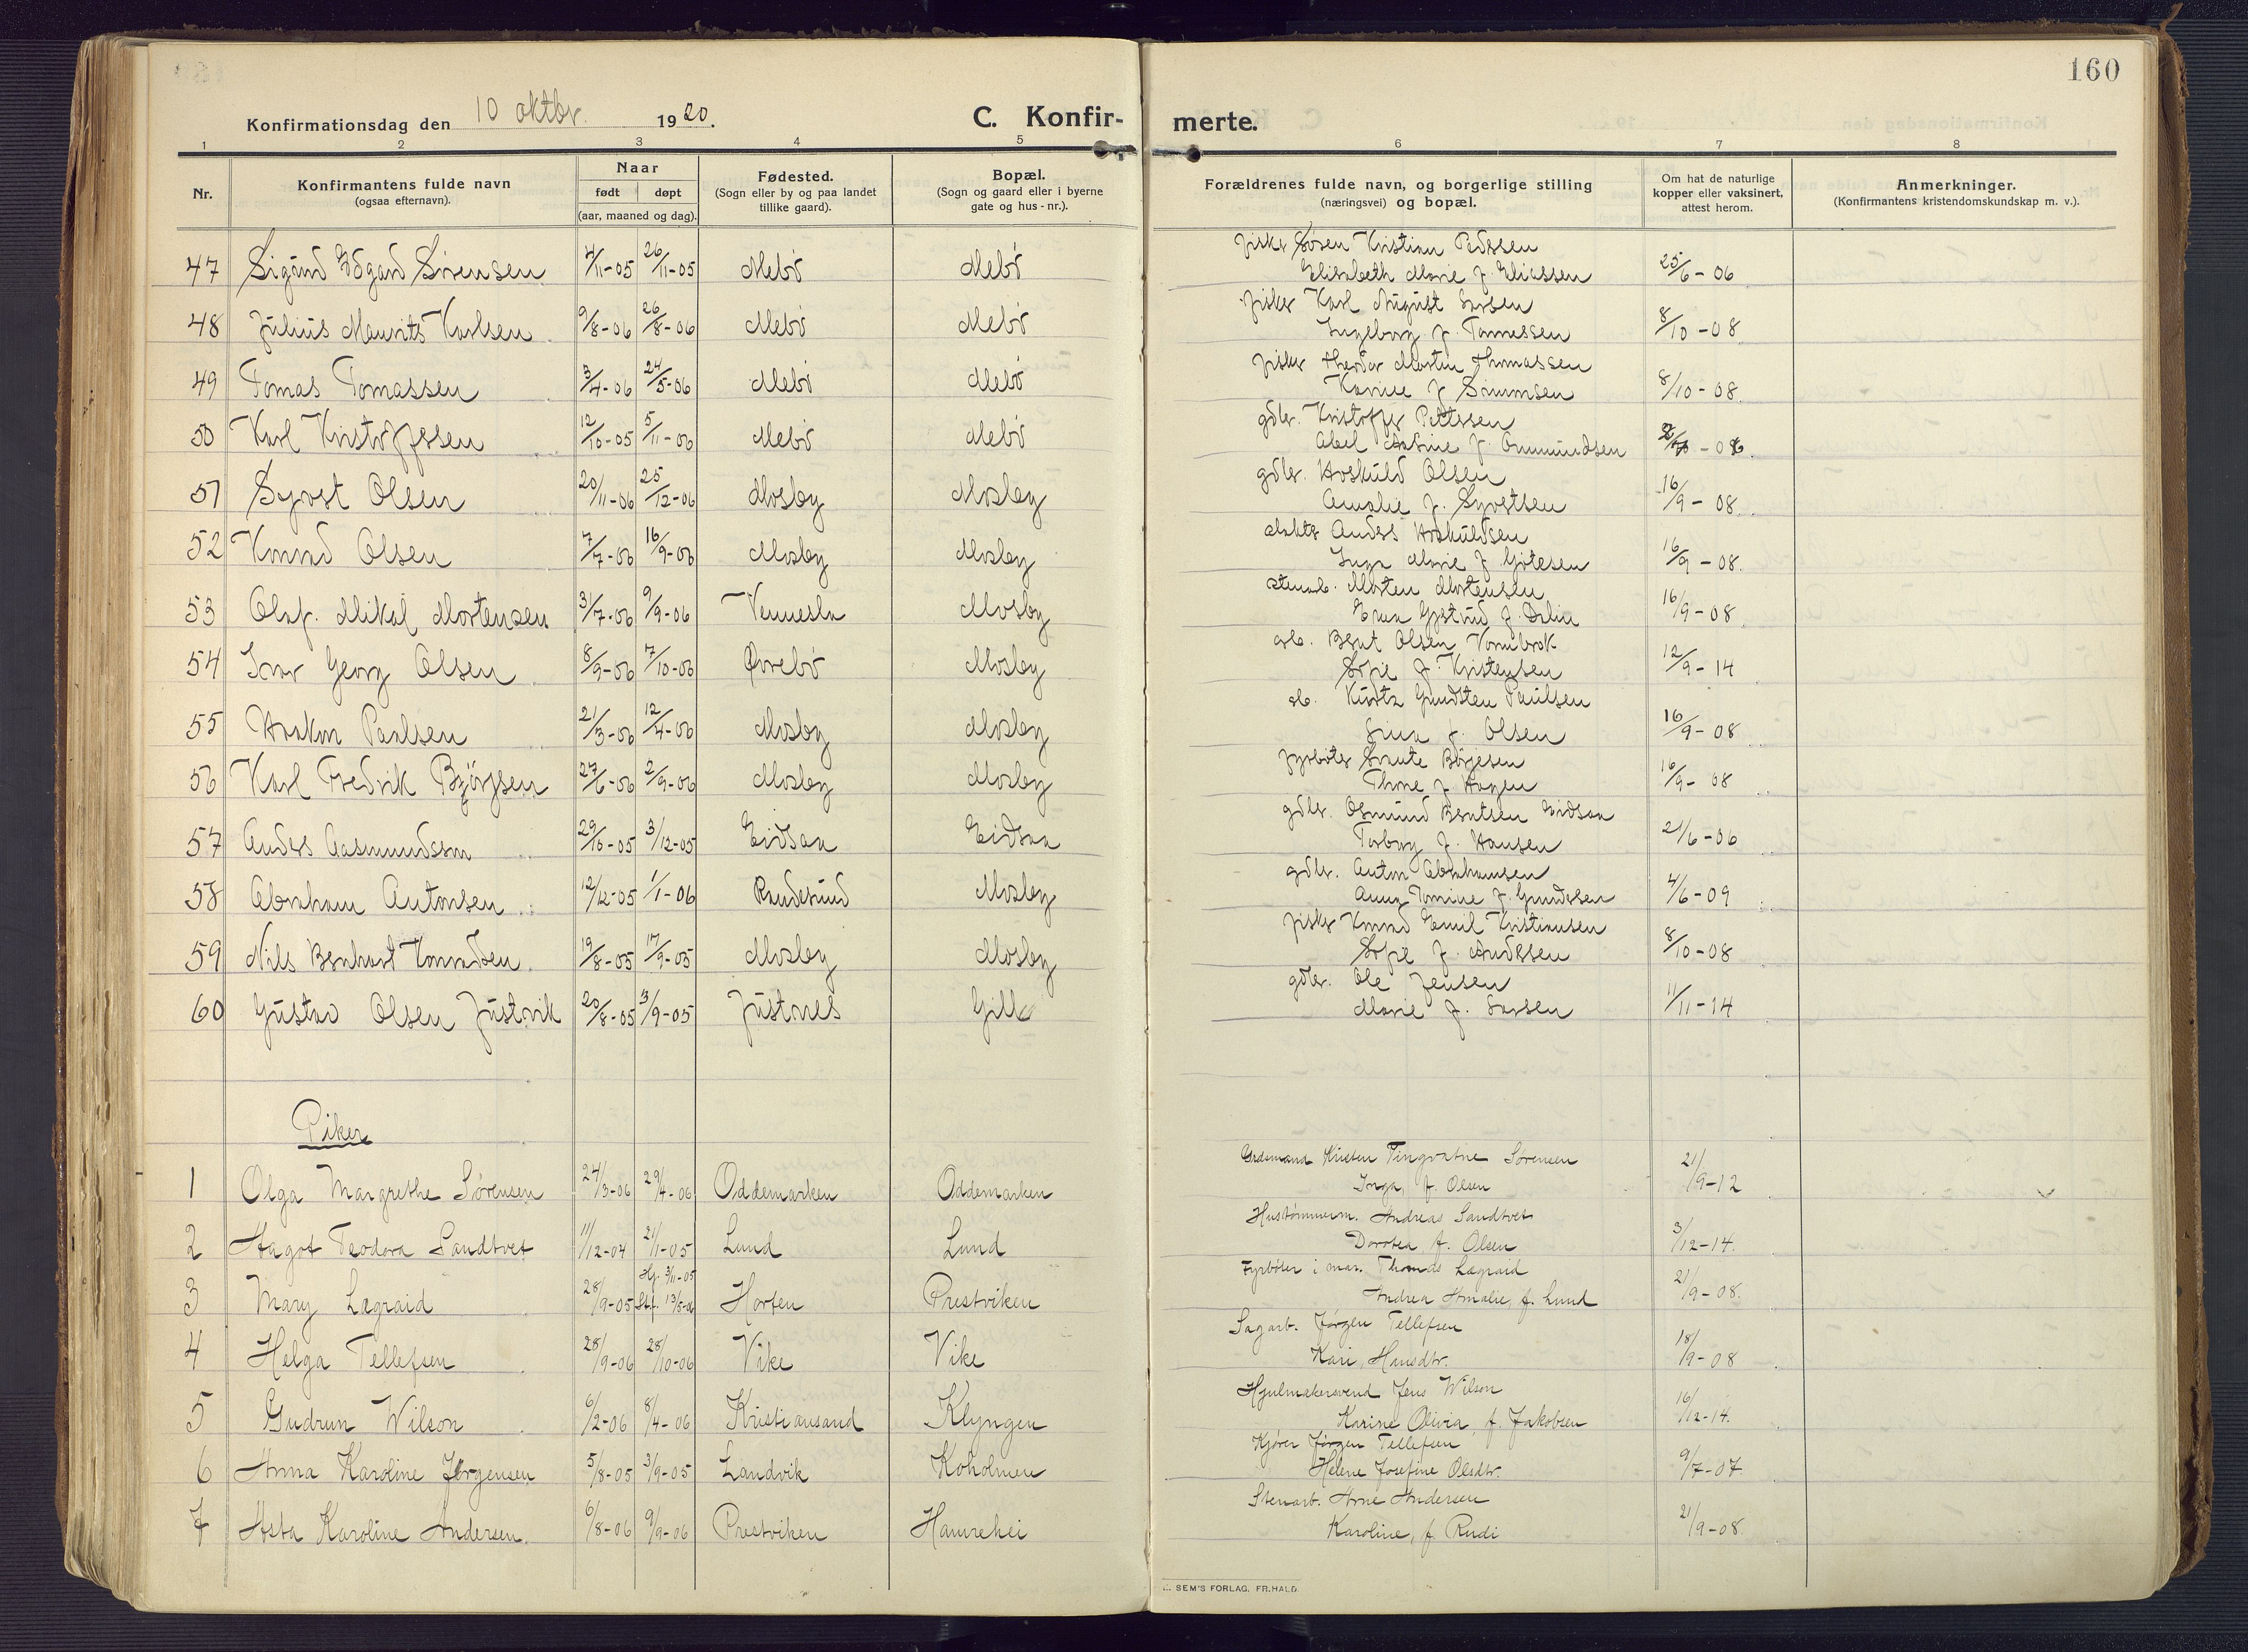 160
Konfirmationsdag den 10 oktbr. 1920.
C. Konfirmerte.
1 2 3 4 5 6 7 8
Nr.
Konfirmantens fulde navn
(ogsaa efternavn).
Naar
født døpt
(aar, maaned og dag).
Fødested.
(Sogn eller by og paa landet
tillike gaard).
Bopæl.
(Sogn og gaard eller i byerne
gate og hus-nr.).
Forældrenes fulde navn, og borgerlige stilling
(næringsvei) og bopæl.
Om hat de naturlige
kopper eller vaksinert,
attest herom.
Anmerkninger.
(Konfirmantens kristendomskundskap m. v.).
fisker Søren Kristian Pedersen
47 Sigurd Edgard Sørensen 4/11-05 26/11-05 Mebø Mebø Elisabeth Marie f. Eliassen 25/6-06
fisker Karl August Larsen
48 Julius Maurits Karlsen 9/8-06 26/8-06 Mebø Mebø Ingeborg f. Tomassen 8/10-08
fisker Theodor Martin Thomassen
49 Tomas Tomassen 3/4-06 24/5-06 Mebø Mebø Karine f 8/10-08.
gdbr. Kristoffer Pettersen
50 Karl Kristoffersen 12/10-05 5/11-06 Mebø Mebø Abel f. Ommundsen
gdbr. Hoskuld Olsen
51 Syvert Olsen 20/11-06 25/12-06 Mosby Mosby Amalie f. Syvertsen 16/9-08.
slakter Anders Hoskuldsen
52 Konrad Olsen 7/7-06 16/9-06 Mosby Mosby Inga Marie f. 16/9-08.
stenarb. Morten Mortensen
53 Olaf. Mikal Mortensen 31/7-06 9/9-06 Vennesla Mosby f. Dalin 16/9-08
arb. Bernt Olsen Vormbrok
54 Ivar Georg Olsen 8/9-06 7/10-06 Øvrebø Mosby Sofie f. Kristensen 12/9-14
Gundsten Paulsen
55 Haakon Paulsen 21/3-06 12/4-06 Mosby Mosby f. Olsen 16/9-08
fyrbøter Børjesen
56 Karl Fredrik Bjørgsen 27/6-06 2/9-06 Mosby Mosby Thone f. Hagen 16/9-08
gdbr. Osmund Berntsen Eidsaa
57 Anders Aasmundsen 29/10-05 3/12-05 Eidsaa Eidsaa Torborg f. Hansen 21/6-06
gdbr. Anton Abrahamsen
58 Abraham Antonsen 12/12-05 1/1-06 Randesund Mosby Anna Tomine f. Gundersen 4/6-09
fisker Konrad Emil Kristiansen
59 Nils Bernhart Konradsen 19/8-05 17/9-05 Mosby Mosby Sofie f. Andersen 8/10-08
gdbr. Ole Jensen
60 Gustav Olsen Justvik 20/8-05 3/9-05 Justnes Gill Marie f. Larsen 11/11-14
Piker
Kristen Tingvatne Sørensen
1 Olga Margrethe Sørensen 24/3-06 29/4-06 Oddemarken Oddemarken Inga, f. Olsen 21/9-12
Hustømmerm. Andreas Sandtvet
2 Hagot Teodora Sandtvet 11/12-04 21/1-05 Lund Lund Dorotea f. Olsen 3/12-14.
Fyrbøter i mar. Thomas Lægraid
3 Mary Lægraid 28/9-05 Hj. 3/11-05 St.f. 13/5-06 Horten Prestviken Andrea Amalie, f. Lund 21/9-08.
Sagarb. Jørgen Tellefsen
4 Helga Tellefsen 28/9-06 28/10-06 Vike Vike Kari, Hansdtr. 18/9-08
Hjulmakersvend Jens Wilson
5 Gudrun Wilson 6/2-06 8/4-06 Kristiansand Klyngen Karine Olivia, f. Jakobsen 16/12-14.
Kjører Jørgen Tellefsen
6 Anna Karoline Jørgensen 5/8-05 3/9-05 Landvik Koholmen Helene Josefine Olsdtr. 9/7-07.
Stenarb. Arne Andersen
7 Asta Karoline Andersen. 6/8-06 9/9-06 Prestviken Hamrehei Karoline, f Rudi 21/9-08.
E. SEM'S FORLAG, FR.HALD